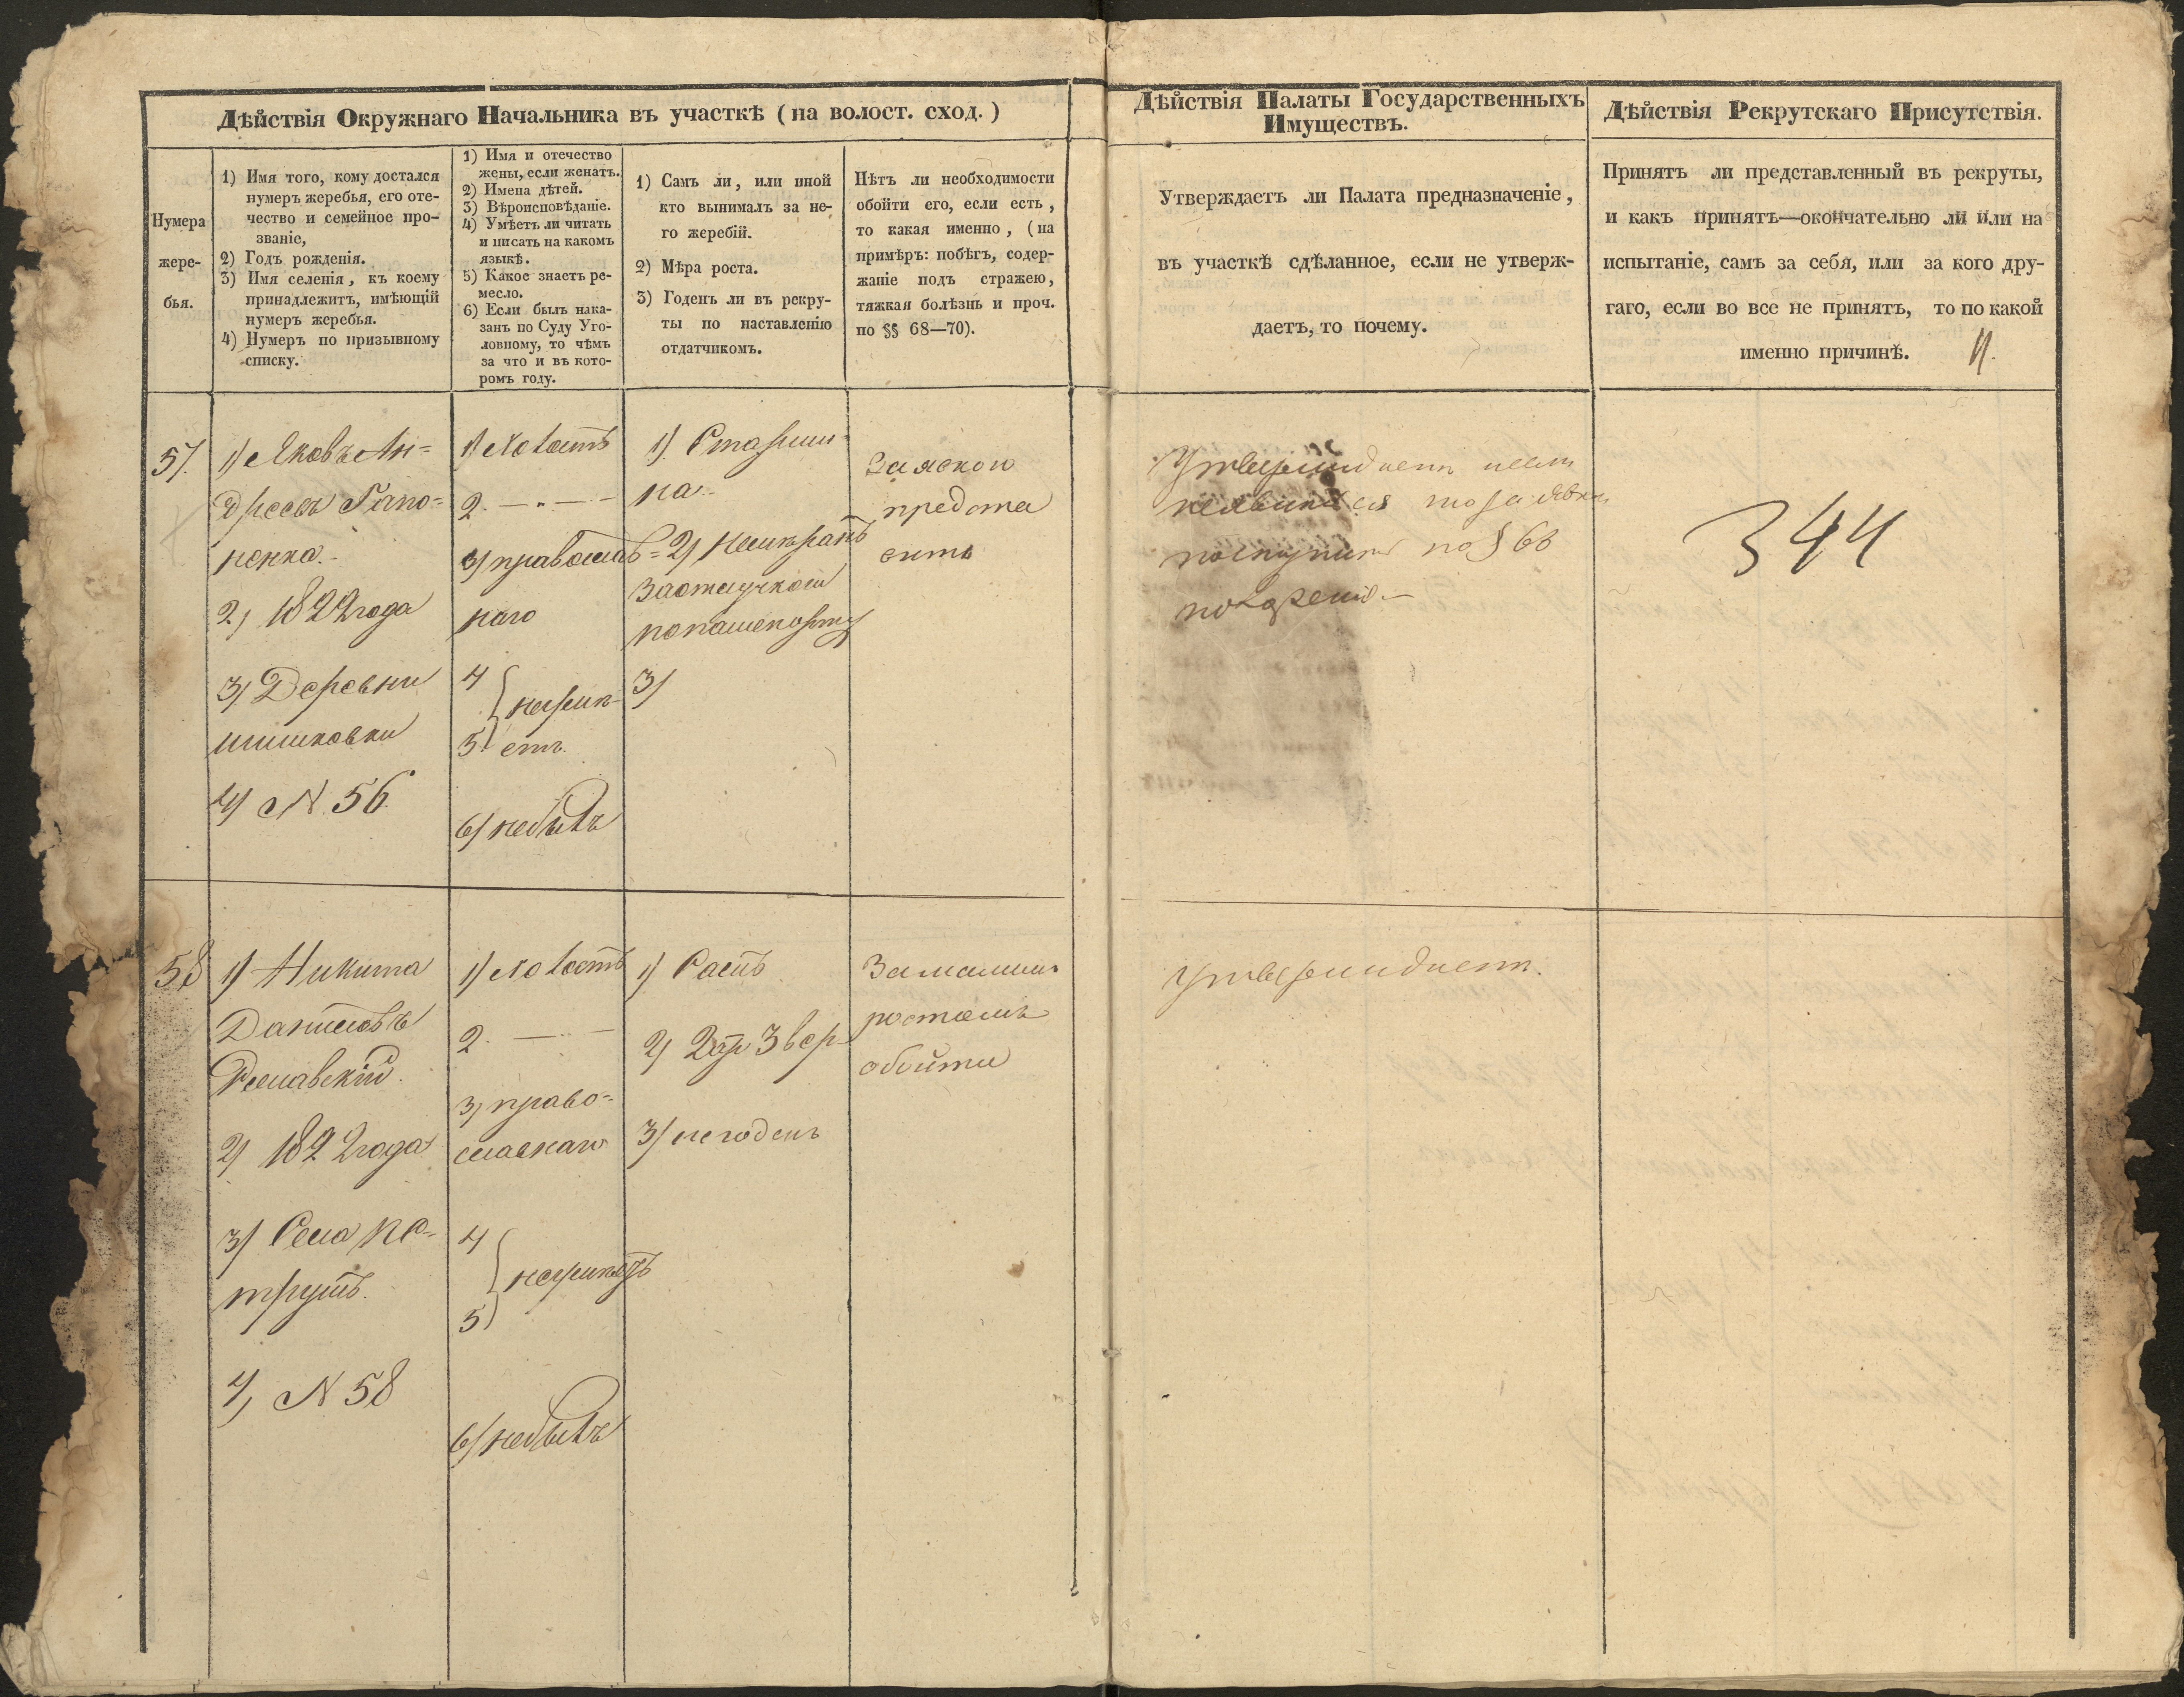 Дѣйствія Окружнаго Начальника въ участкѣ (на волост. сход.)
Нумера
жере-
бья.
1) Имя того, кому достался
нумеръ жеребья, его оте-
чество и семейное про-
званіе,
2) Годъ рожденія.
3) Имя селенія, къ коему
принадлежитъ, имѣющій
нумеръ жеребья.
4) Нумеръ по призывному
списку.
1) Имя и отечество
жены, если женатъ.
2) Имена дѣтей.
3) Вѣроисповѣданіе.
4) Умѣетъ ли читать
и писать на какомъ
языкѣ.
5) Какое знаетъ ре-
месло.
6) Если былъ нака-
занъ по Суду Уго-
ловному, то чѣмъ
за что и въ кото-
ромъ году.
1) Самъ ли, или иной
кто вынималъ за не-
го жеребій.
2) Мѣра роста.
3) Годенъ ли въ рекру-
ты по наставленію
отдатчикомъ.
Нѣтъ ли необходимости
обойти его, если есть,
то какая именно, (на
примѣръ: побѣгъ, содер-
жаніе подъ стражею,
тяжкая болѣзнь и проч.
по §§ 68—70).
57.
1) Яковъ Ан=
дреевъ Гапо=
ненко.
2) 1822 года
3) Деревни
Шишковки
4) N. 56
1) Холостъ
2. — " —
3) православ=
наго
4
5) неумѣ-
етъ.
6) небылъ
1) Старши=
на.
2)
3)
предста
вить
58
1) Никита
Даниловъ
2) 1822 года
3) Села Пе-
трутъ.
4) N 58
1) Холостъ
2. — —
3) право=
славнаго
4
5) неумѣетъ
6) небылъ
1) Самъ
2) 2 ар 3 вер
3) негоденъ
За малымъ
ростомъ
обойти
Дѣйствія Палаты Государственныхъ
Имуществъ.
Утверждаетъ ли Палата предназначеніе,
въ участкѣ сдѣланное, если не утверж-
даетъ, то почему.
Утверждаетъ
по § 68
Утверждаетъ.
Дѣйствія Рекрутскаго Присутствія.
Принятъ ли представленный въ рекруты,
и какъ принятъ—окончательно ли или на
испытаніе, самъ за себя, или за кого дру-
гаго, если во все не принятъ, то по какой
именно причинѣ.
344